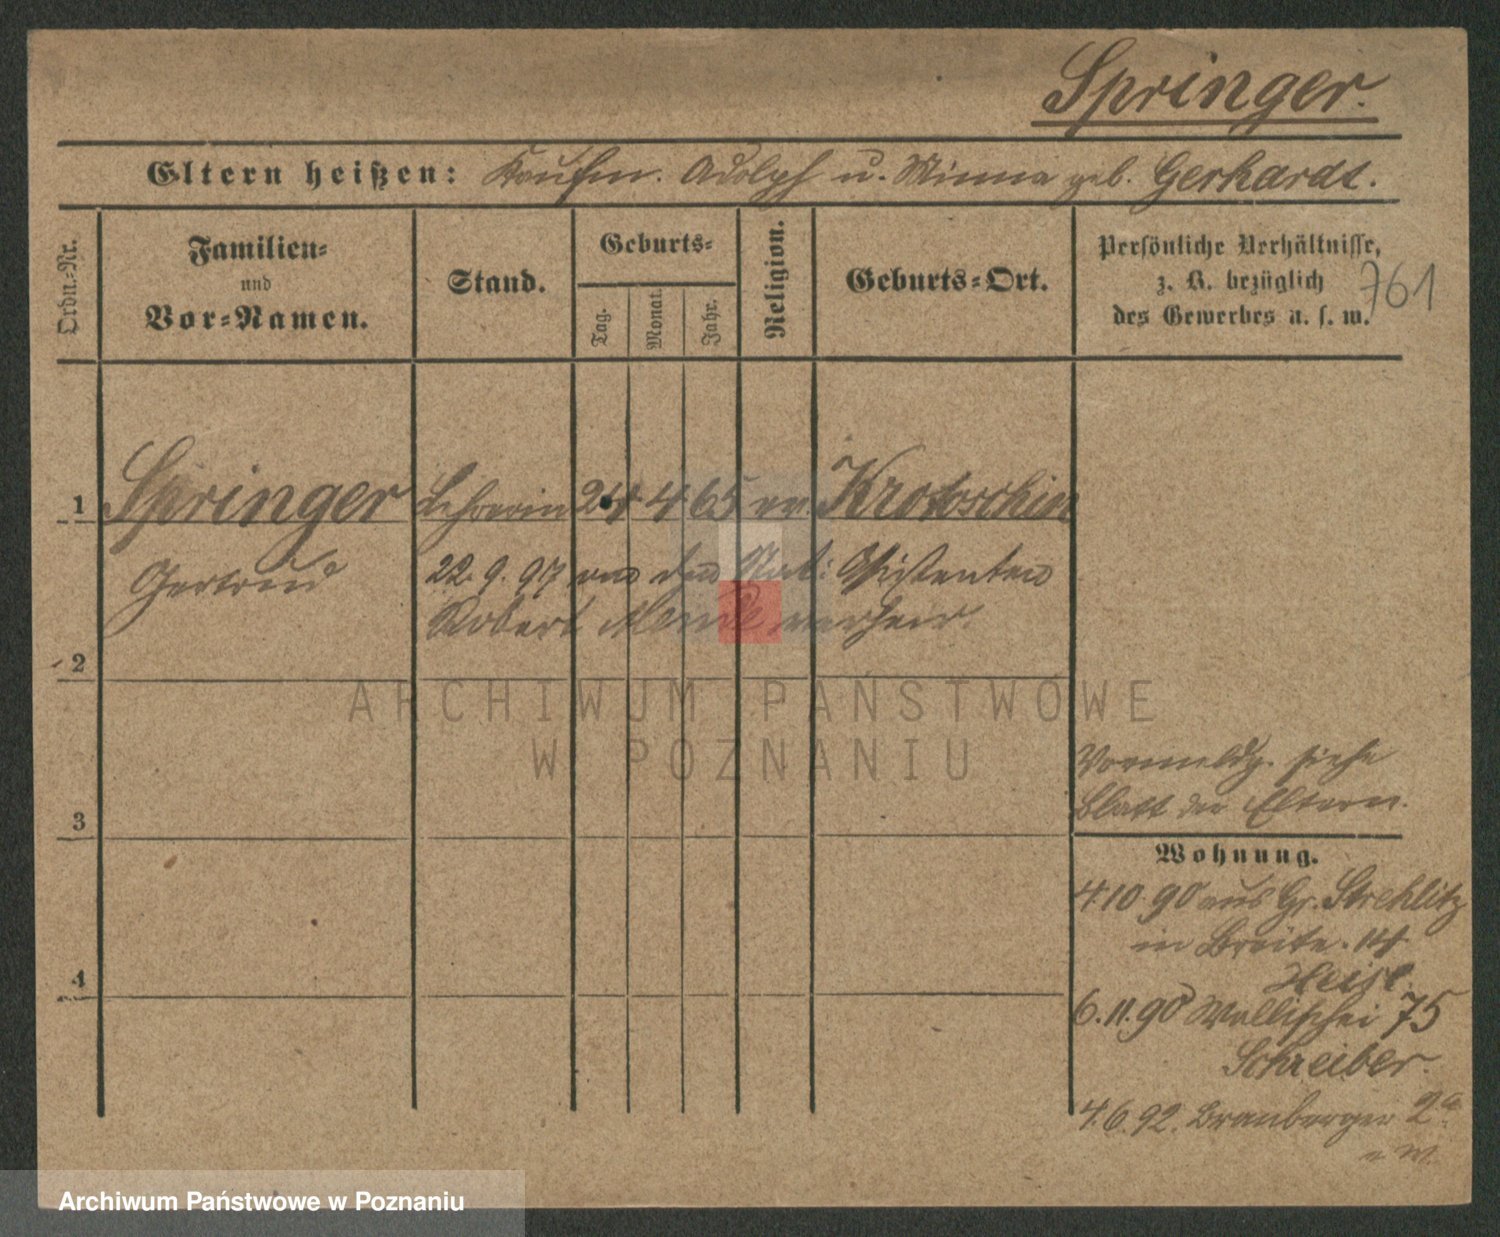 Springer.
Eltern heißen: Kaufm. Adolph u. Minna geb. Gerhardt.
Ordn.-Nr.
Familien-
und
Vor-Namen.
Stand.
Geburts-
Tag.
Monat.
Jahr.
Religion.
Geburts-Ort.
Persönliche Verhältnisse,
z. B. bezüglich
des Gewerbes u. s. w.
761
1 Springer Lehrerin 24 4 65 ev. Krotoschin
Gertrud 22. 9. 97 Assistenten
Robert verheir.
2
ARCHIWUM PAŃSTWOWE
W POZNANIU
Vormeldg. siehe
Blatt der Eltern.
3
Wohnung.
4.10.90 aus Gr. Strehlitz
in Breite
4
6.11.90 Wallischei 75
Schreiber.
4.6.92. 2a
Archiwum Państwowe w Poznaniu